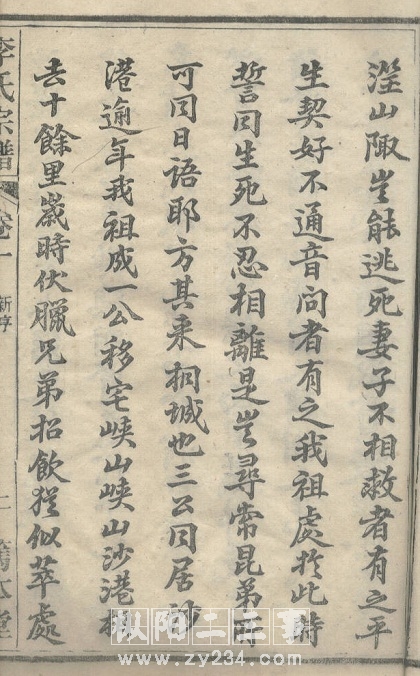 溼山陬岂能逃死妻子不相救者有之平
生契好不通音问者有之我祖處扵此時
誓囘生死不忍相離是岂尋常昆弟所
可囘日语耶方其来桐城也三公囘居沙
港逾年我祖成一公移宅峡山峡山沙港相
去十餘里嵗時伏臘兄弟招飲猶似萃處
李氏宗譜
卷一
二
枞阳二三事
www.zy234.com